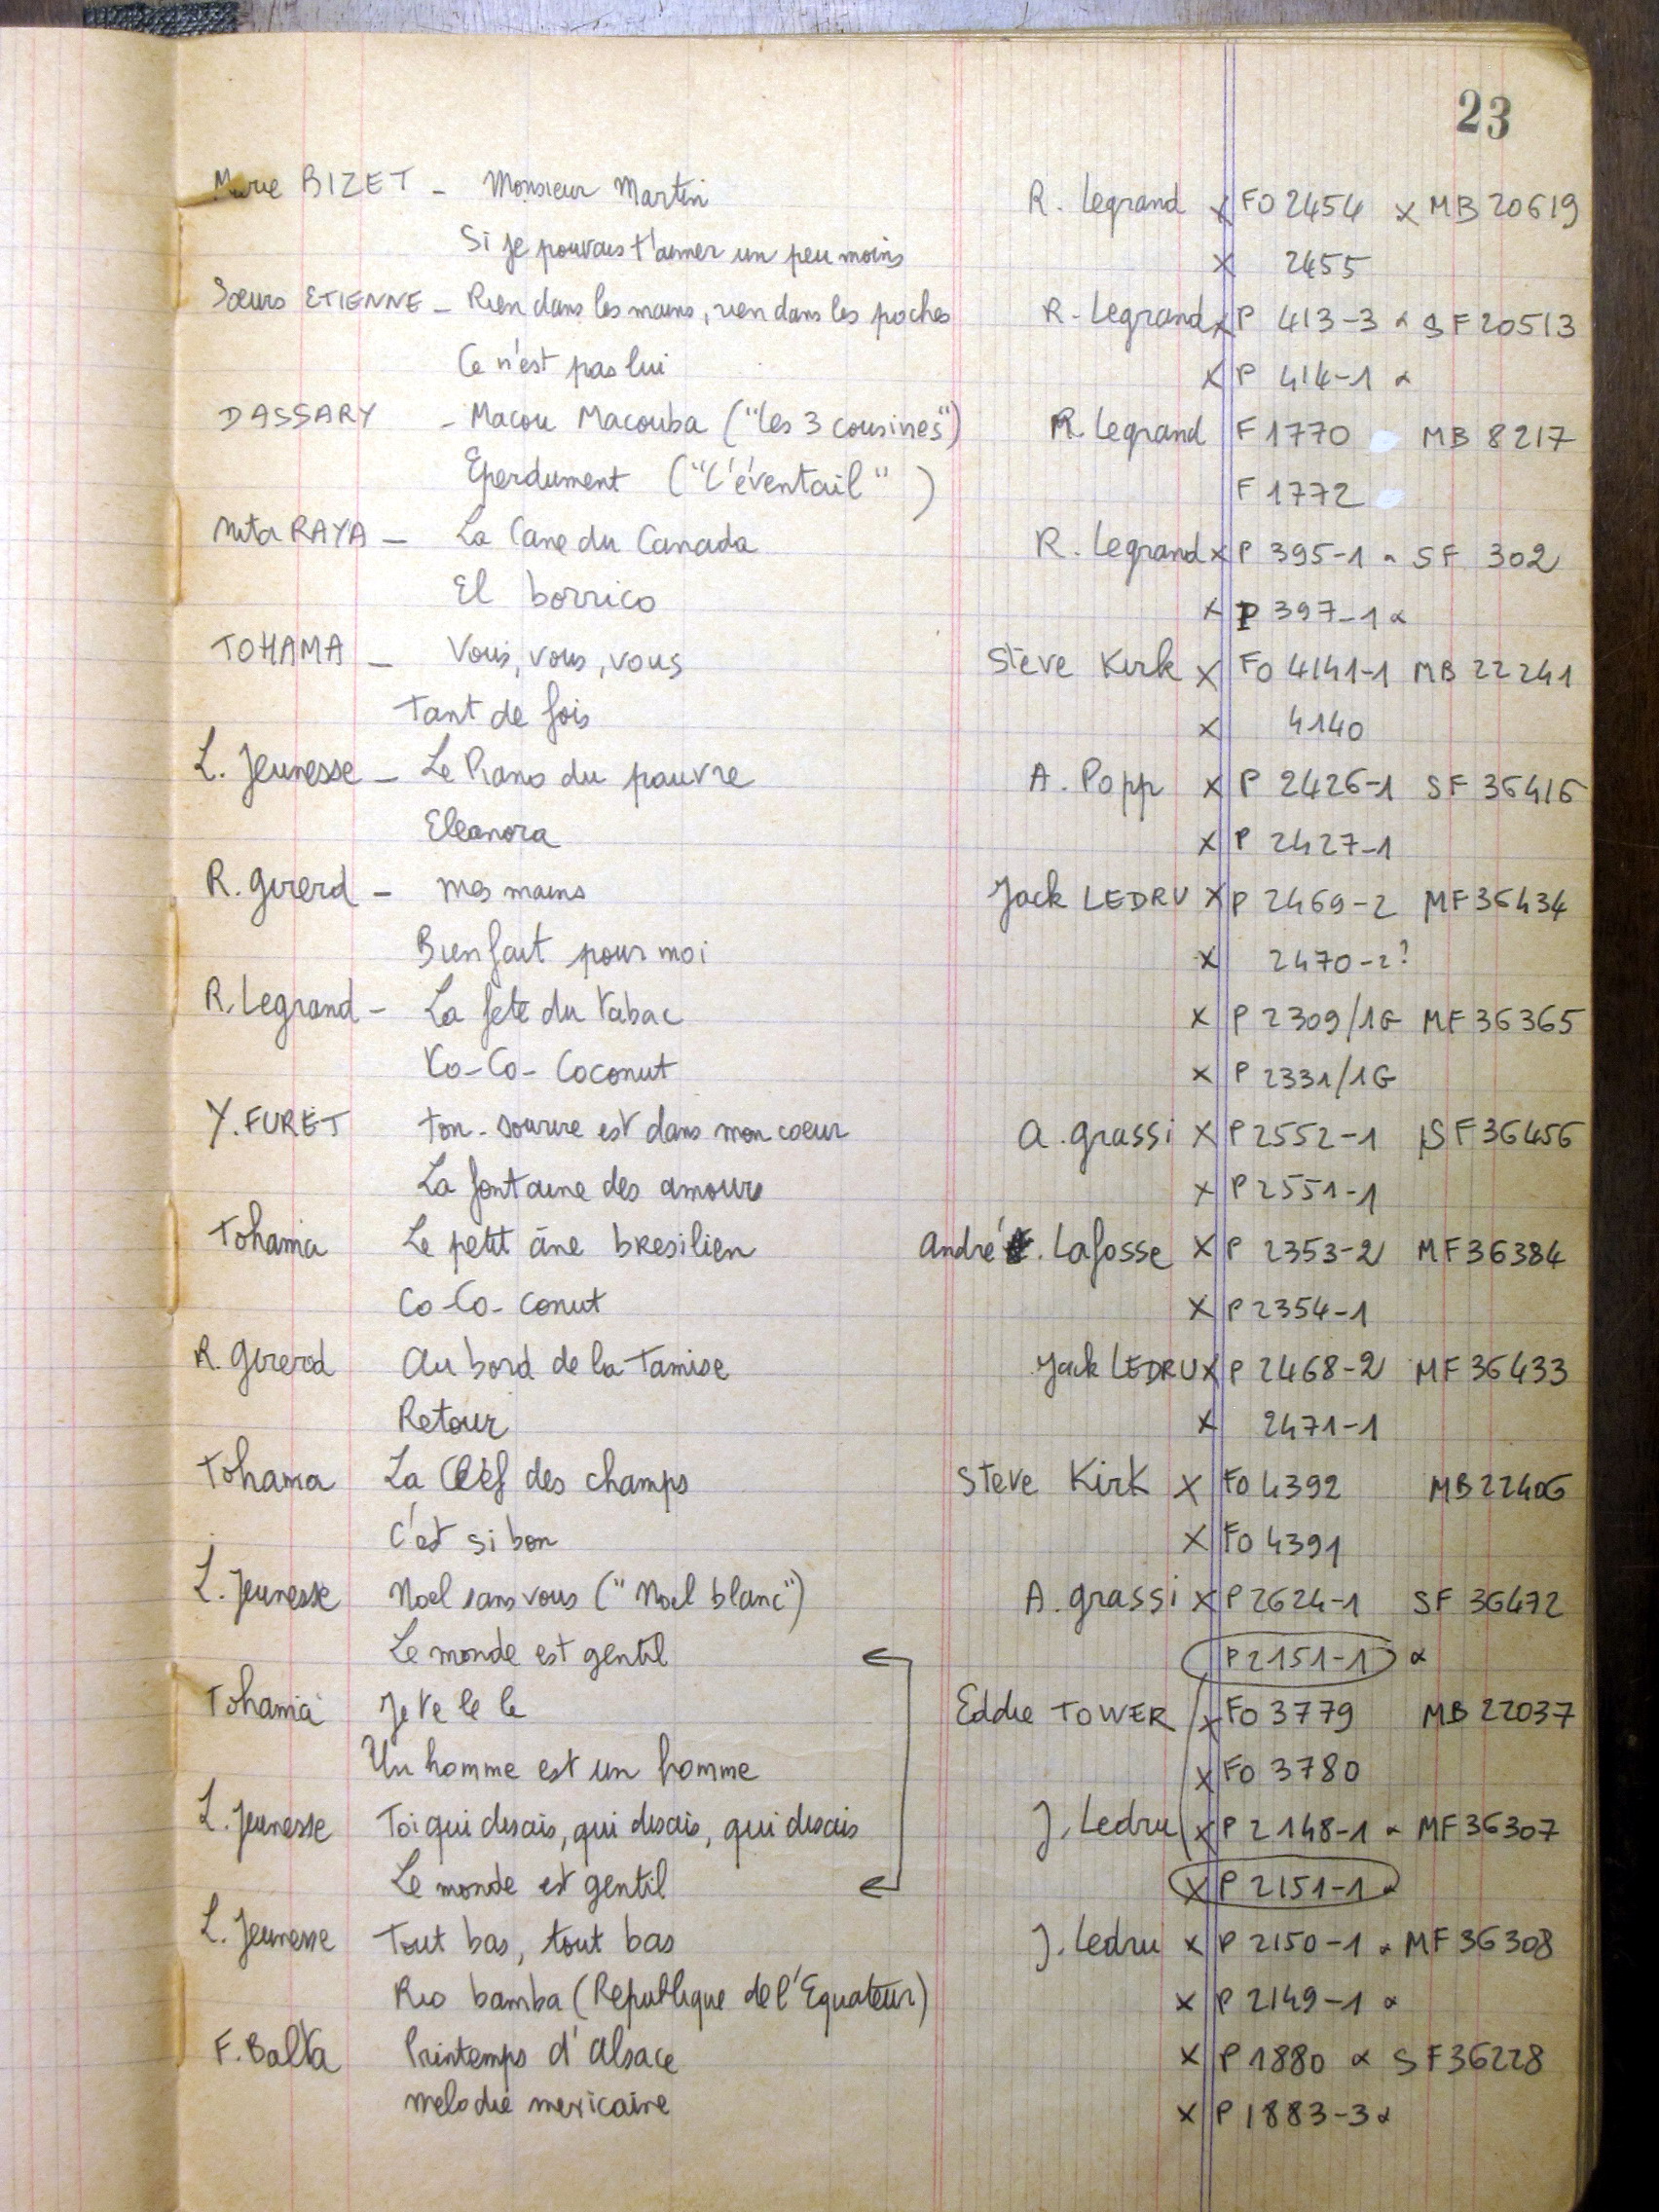 23
Marie BIZET - Monsieur Martin R. Legrand x FO 2454 x MB 20619
Si je pouvais t'aimer un peu moins x 2455
Soeurs ETIENNE - Rien dans les mains, rien dans les poches R. Legrand x P 413-3 α SF 20513
Ce n'est pas lui x P 414-1 α
DASSARY - Macou Macouba ("Les 3 cousines") R. Legrand F 1770 MB 8217
Eperdument ("L'éventail") F 1772
Nita RAYA - La Cane du Canada R. Legrand x P 395-1 α SF 302
El borrico x P 397-1 α
TOHAMA - Vous, vous, vous Steve Kirk x FO 4141-1 MB 22241
Tant de fois x 4140
L. Jeunesse - Le Piano du pauvre A. Popp x P 2426-1 SF 36416
Eleanora x P 2427-1
R. Girerd - mes mains Jack LEDRU x P 2469-2 MF 36434
Bien fait pour moi x 2470-2?
R. Legrand - La fete du tabac x P 2309/1G MF 36365
Co-Co-Coconut x P 2331/1G
Y. FURET Ton sourire est dans mon coeur A. Grassi x P 2552-1 SF 36456
La fontaine des amours x P 2551-1
Tohama Le petit âne bresilien André . Lafosse x P 2353-2 MF 36384
Co-Co-conut x P 2354-1
R. Girerd Au bord de la Tamise Jack LEDRU x P 2468-2 MF 36433
Retour x 2471-1
Tohama La Clef des champs Steve Kirk x FO 4392 MB 22406
C'est si bon x FO 4391
L. Jeunesse Noel sans vous ("Noel blanc") A. Grassi x P 2624-1 SF 36472
Le monde est gentil P 2151-1 α
Tohama Je te le le Eddie TOWER x FO 3779 MB 22037
Un homme est un homme x FO 3780
L. Jeunesse Toi qui disais, qui disais, qui disais J. Ledru x P 2148-1 α MF 36307
Le monde est gentil x P 2151-1 α
L. Jeunesse Tout bas, tout bas J. Ledru x P 2150-1 α MF 36308
Rio bamba (Republique de l'Equateur) x P 2149-1 α
F. Balta Printemps d'Alsace x P 1880 α SF 36228
Melodie mexicaine x P 1883-3 α